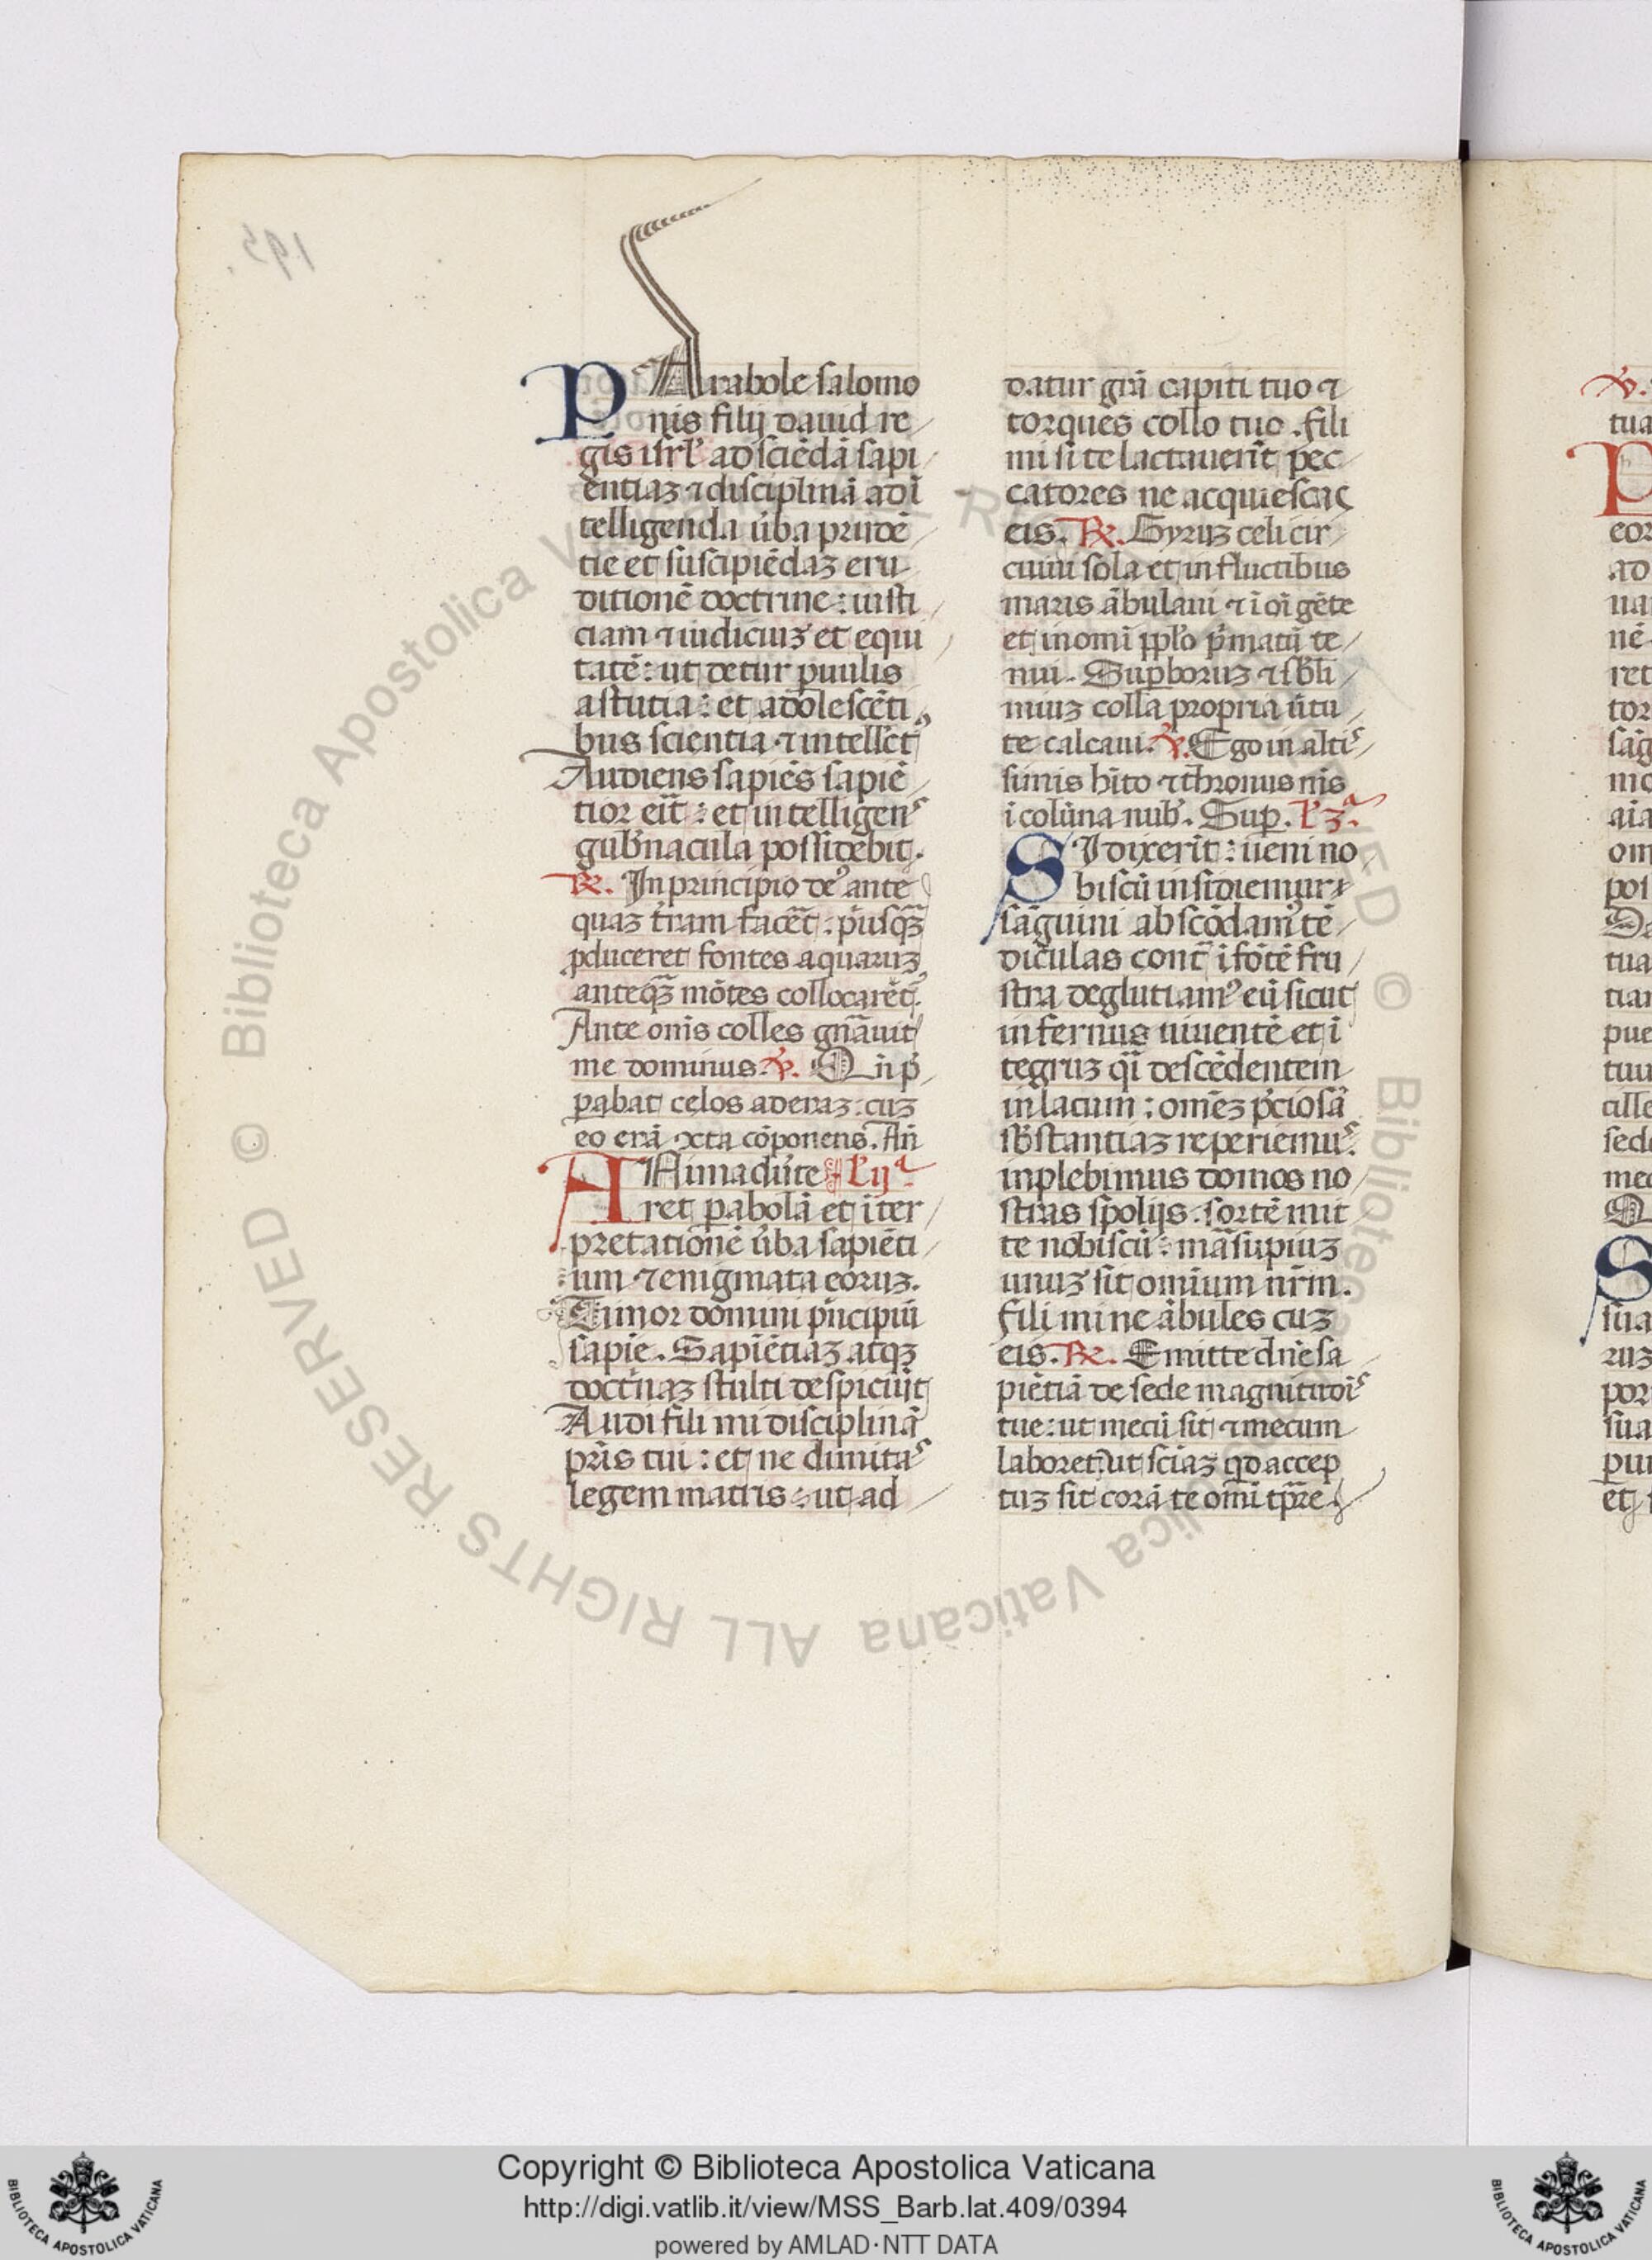 PArabole salomo
nis filij dauid re
gis isrl' ad sciēdā sapi
entiaȝ ⁊ disciplinā ad ī
telligenda ūba prudē
tie et suscipiēdaȝ eru
ditionē doctrine : iusti
ciam ⁊ iudiciuȝ et equi
tatē : ut detur puulis
astutia : et adolescēti
bus scientia ⁊ intellēt
Audiens sapiēs sapiē
tior erit : et intelligens
gub'nacula possidebit.
℟. In principio de' ante
quaȝ t'ram facēt : p'usqȝ
produceret fontes aquaruȝ
anteqȝ mōtes collocarēt'.
Ante om̄s colles gn̄auit
me dominus. ℣. Qn̄ p̄
pabat celos aderaȝ : cuȝ
eo erā cūcta cōponens. An̄
ANimadu'te ł'ij a
ret pabolā et īter
pretationē ūba sapiēti
um ⁊ enigmata eoruȝ.
Timor domini p'ncipiū
sapīe. Sapiētiaȝ atqȝ
doct'naȝ stulti despiciūt
Audi fili mi disciplinā
pr̄is tui : et ne dimitas
legem matris : ut ad
datur gr̄a capiti tuo ⁊
torques collo tuo . fili
mi si te lactauerīt pec
catores ne acquiescas
eis. ℟. Gyruȝ celi cir
cuiui sola et in fluctibus
maris ābulaui ⁊ ī oī gēte
et in omī pplo p'matū te
nui. Supboruȝ ⁊ sbli
miuȝ colla propria ūtu
te calcaui. ℣. Ego in altis
simis h̄ito ⁊ thronus m̄s
ī colūna nub'. Sup. ł'ȝ a.
SI dixerīt : ueni no
biscū insidiemur
sāguini abscōdam' tē
diculas cont̄ īsōtē fru
stra deglutiam' eū sicut
infernus uiuentē et ī
tegruȝ q̄i descēdentem
in lacum : omēȝ p'ciosā
sb̄stantiaȝ reperiemus.
inplebimus domos no
stras spolijs . sortē mit
te nobiscū : mārsupiuȝ
unuȝ sit omnium nr̄m.
fili mi ne ābules cuȝ
eis. ℟. Emitte dn̄e sa
piētiā de sede magnitudīs
tue : ut mecū sit ⁊ mecum
laboret : ut sciaȝ qd accep
tuȝ sit corā te omī tpr̄e
Copyright © Biblioteca Apostolica Vaticana
http://digi.vatlib.it/view/MSS_Barb.lat.409/0394
powered by AMLAD·NTT DATA